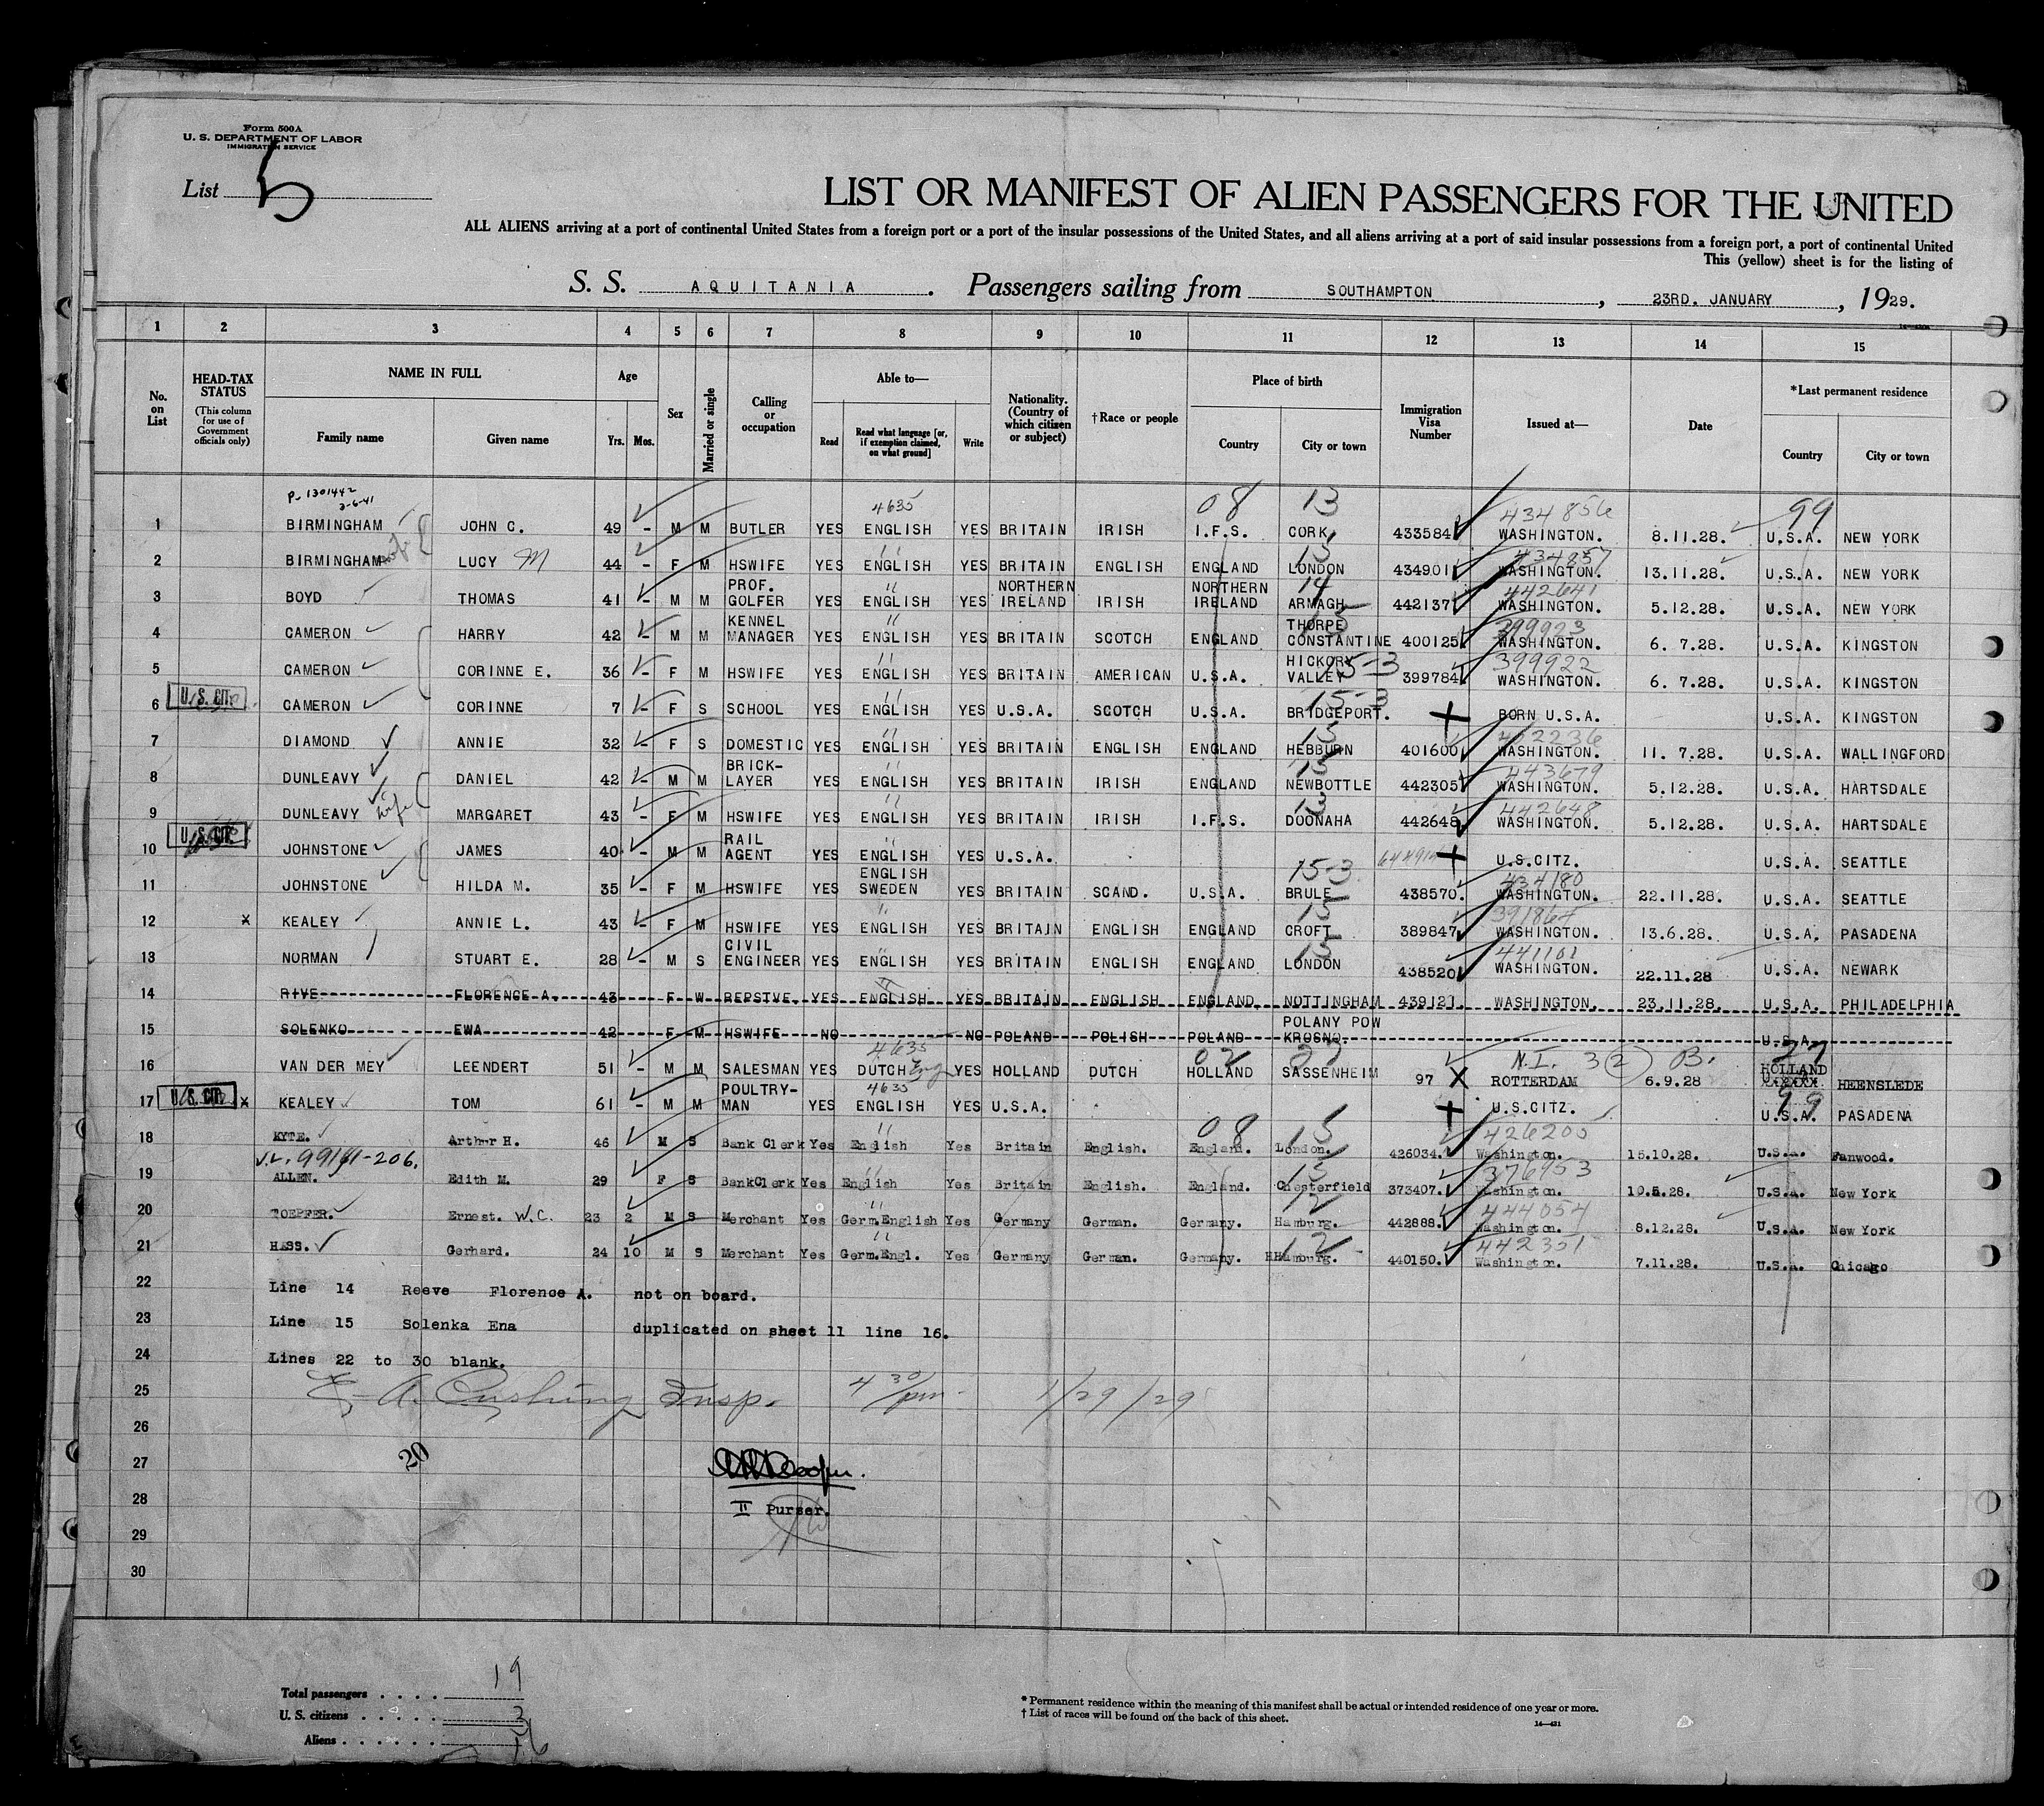 Form 500A
U. S. DEPARTMENT OF LABOR
IMMIGRATION SERVICE
List 5
LIST OR MANIFEST OF ALIEN PASSENGERS FOR THE UNITED
ALL ALIENS arriving at a port of continental United States from a foreign port or a port of the insular possessions of the United States, and all aliens arriving at a port of said insular possessions from a foreign port, a port of continental United
This (yellow) sheet is for the listing of
S. S. AQUITANIA. Passengers sailing from SOUTHAMPTON, 23RD. JANUARY, 1929.
1 2 3 4 5 6 7 8 9 10 11 12 13 14 15
No. on List
HEAD-TAX STATUS (This column for use of Government officials only)
NAME IN FULL
Family name Given name
Age Yrs. Mos.
Sex
Married or single
Calling or occupation
Able to—
Read Read what language [or, if exemption claimed, on what ground] Write
Nationality. (Country of which citizen or subject)
†Race or people
Place of birth
Country City or town
Immigration Visa Number
Issued at—
Date
*Last permanent residence
Country City or town
P-1301442
3-6-41
4635 08 13 434856 99
1 BIRMINGHAM JOHN C. 49 - M M BUTLER YES ENGLISH YES BRITAIN IRISH I.F.S. CORK 433584 WASHINGTON. 8.11.28. U.S.A. NEW YORK
" 15 434857
2 BIRMINGHAM wife LUCY M 44 - F M HSWIFE YES ENGLISH YES BRITAIN ENGLISH ENGLAND LONDON 434901 WASHINGTON. 13.11.28. U.S.A. NEW YORK
" 14 442641
3 BOYD THOMAS 41 - M M PROF. GOLFER YES ENGLISH YES NORTHERN IRELAND IRISH NORTHERN IRELAND ARMAGH 442137 WASHINGTON. 5.12.28. U.S.A. NEW YORK
" 15 399923
4 CAMERON HARRY 42 - M M KENNEL MANAGER YES ENGLISH YES BRITAIN SCOTCH ENGLAND THORPE CONSTANTINE 400125 WASHINGTON. 6. 7.28. U.S.A. KINGSTON
" 15-3 399922
5 CAMERON CORINNE E. 36 - F M HSWIFE YES ENGLISH YES BRITAIN AMERICAN U.S.A. HICKORY VALLEY 399784 WASHINGTON. 6. 7.28. U.S.A. KINGSTON
U.S. CIT. " 15-3
6 CAMERON CORINNE 7 - F S SCHOOL YES ENGLISH YES U.S.A. SCOTCH U.S.A. BRIDGEPORT. BORN U.S.A. U.S.A. KINGSTON
" 15
7 DIAMOND ANNIE 32 - F S DOMESTIC YES ENGLISH YES BRITAIN ENGLISH ENGLAND HEBBURN 401600 WASHINGTON. 11. 7.28. U.S.A. WALLINGFORD
" 15 443679
8 DUNLEAVY DANIEL 42 - M M BRICK-LAYER YES ENGLISH YES BRITAIN IRISH ENGLAND NEWBOTTLE 442305 WASHINGTON. 5.12.28. U.S.A. HARTSDALE
" 13 442648
9 DUNLEAVY wife MARGARET 43 - F M HSWIFE YES ENGLISH YES BRITAIN IRISH I.F.S. DOONAHA 442648 WASHINGTON. 5.12.28. U.S.A. HARTSDALE
U.S. CIT. "
10 JOHNSTONE JAMES 40 - M M RAIL AGENT YES ENGLISH YES U.S.A. U.S.CITZ. U.S.A. SEATTLE
15-3 434180
11 JOHNSTONE HILDA M. 35 - F M HSWIFE YES ENGLISH SWEDEN YES BRITAIN SCAND. U.S.A. BRULE 438570. WASHINGTON. 22.11.28. U.S.A. SEATTLE
" 15 391864
12 x KEALEY ANNIE L. 43 - F M HSWIFE YES ENGLISH YES BRITAIN ENGLISH ENGLAND CROFT 389847 WASHINGTON. 13.6.28. U.S.A. PASADENA
" 15 441101
13 NORMAN STUART E. 28 - M S CIVIL ENGINEER YES ENGLISH YES BRITAIN ENGLISH ENGLAND LONDON 438520 WASHINGTON. 22.11.28 U.S.A. NEWARK
14 RIVE FLORENCE A. 43 F W REPSTVE. YES ENGLISH YES BRITAIN ENGLISH ENGLAND NOTTINGHAM 439121. WASHINGTON. 23.11.28. U.S.A. PHILADELPHIA
15 SOLENKO EWA 42 F M HSWIFE NO NO POLAND POLISH POLAND POLANY POW KROSNO. U.S.A.
4635 02 27 N.I. 3 (2) B. 27
16 VAN DER MEY LEENDERT 51 - M M SALESMAN YES DUTCH Eng YES HOLLAND DUTCH HOLLAND SASSENHEIM 97 X ROTTERDAM 6.9.28 HOLLAND HEENSLEDE
U.S. CIT. 4635 99
17 x KEALEY TOM 61 - M M POULTRY-MAN YES ENGLISH YES U.S.A. U.S.CITZ. U.S.A. PASADENA
" 08 15 426205
18 KYTE. Arthur H. 46 M S Bank Clerk Yes English Yes Britain English. England. London. 426034. Washington. 15.10.28. U.S.A. Fanwood.
" 15 376953
19 ALLEN. Edith M. 29 F S BankClerk Yes English Yes Britain English. England. Chesterfield 373407. Washington. 10.5.28. U.S.A. New York
" 12 444054
20 TOEPFER. Ernest. W.C. 23 2 M S Merchant Yes Germ.English Yes Germany German. Germany. Hamburg. 442888. Washington. 8.12.28. U.S.A. New York
" 12 442351
21 HESS. Gerhard. 24 10 M S Merchant Yes Germ.Engl. Yes Germany German. Germany. HHamburg. 440150. Washington. 7.11.28. U.S.A. Chicago
22 Line 14 Reeve Florence A. not on board.
23 Line 15 Solenka Ena duplicated on sheet 11 line 16.
24 Lines 22 to 30 blank.
25 E. A. Cushing Insp. 4 30/pm. 1/29/29
26
27 20
28 II Purser.
29
30
Total passengers . . . . 19
U. S. citizens . . . . . 3
Aliens . . . . . . 16
* Permanent residence within the meaning of this manifest shall be actual or intended residence of one year or more.
† List of races will be found on the back of this sheet.
14—431